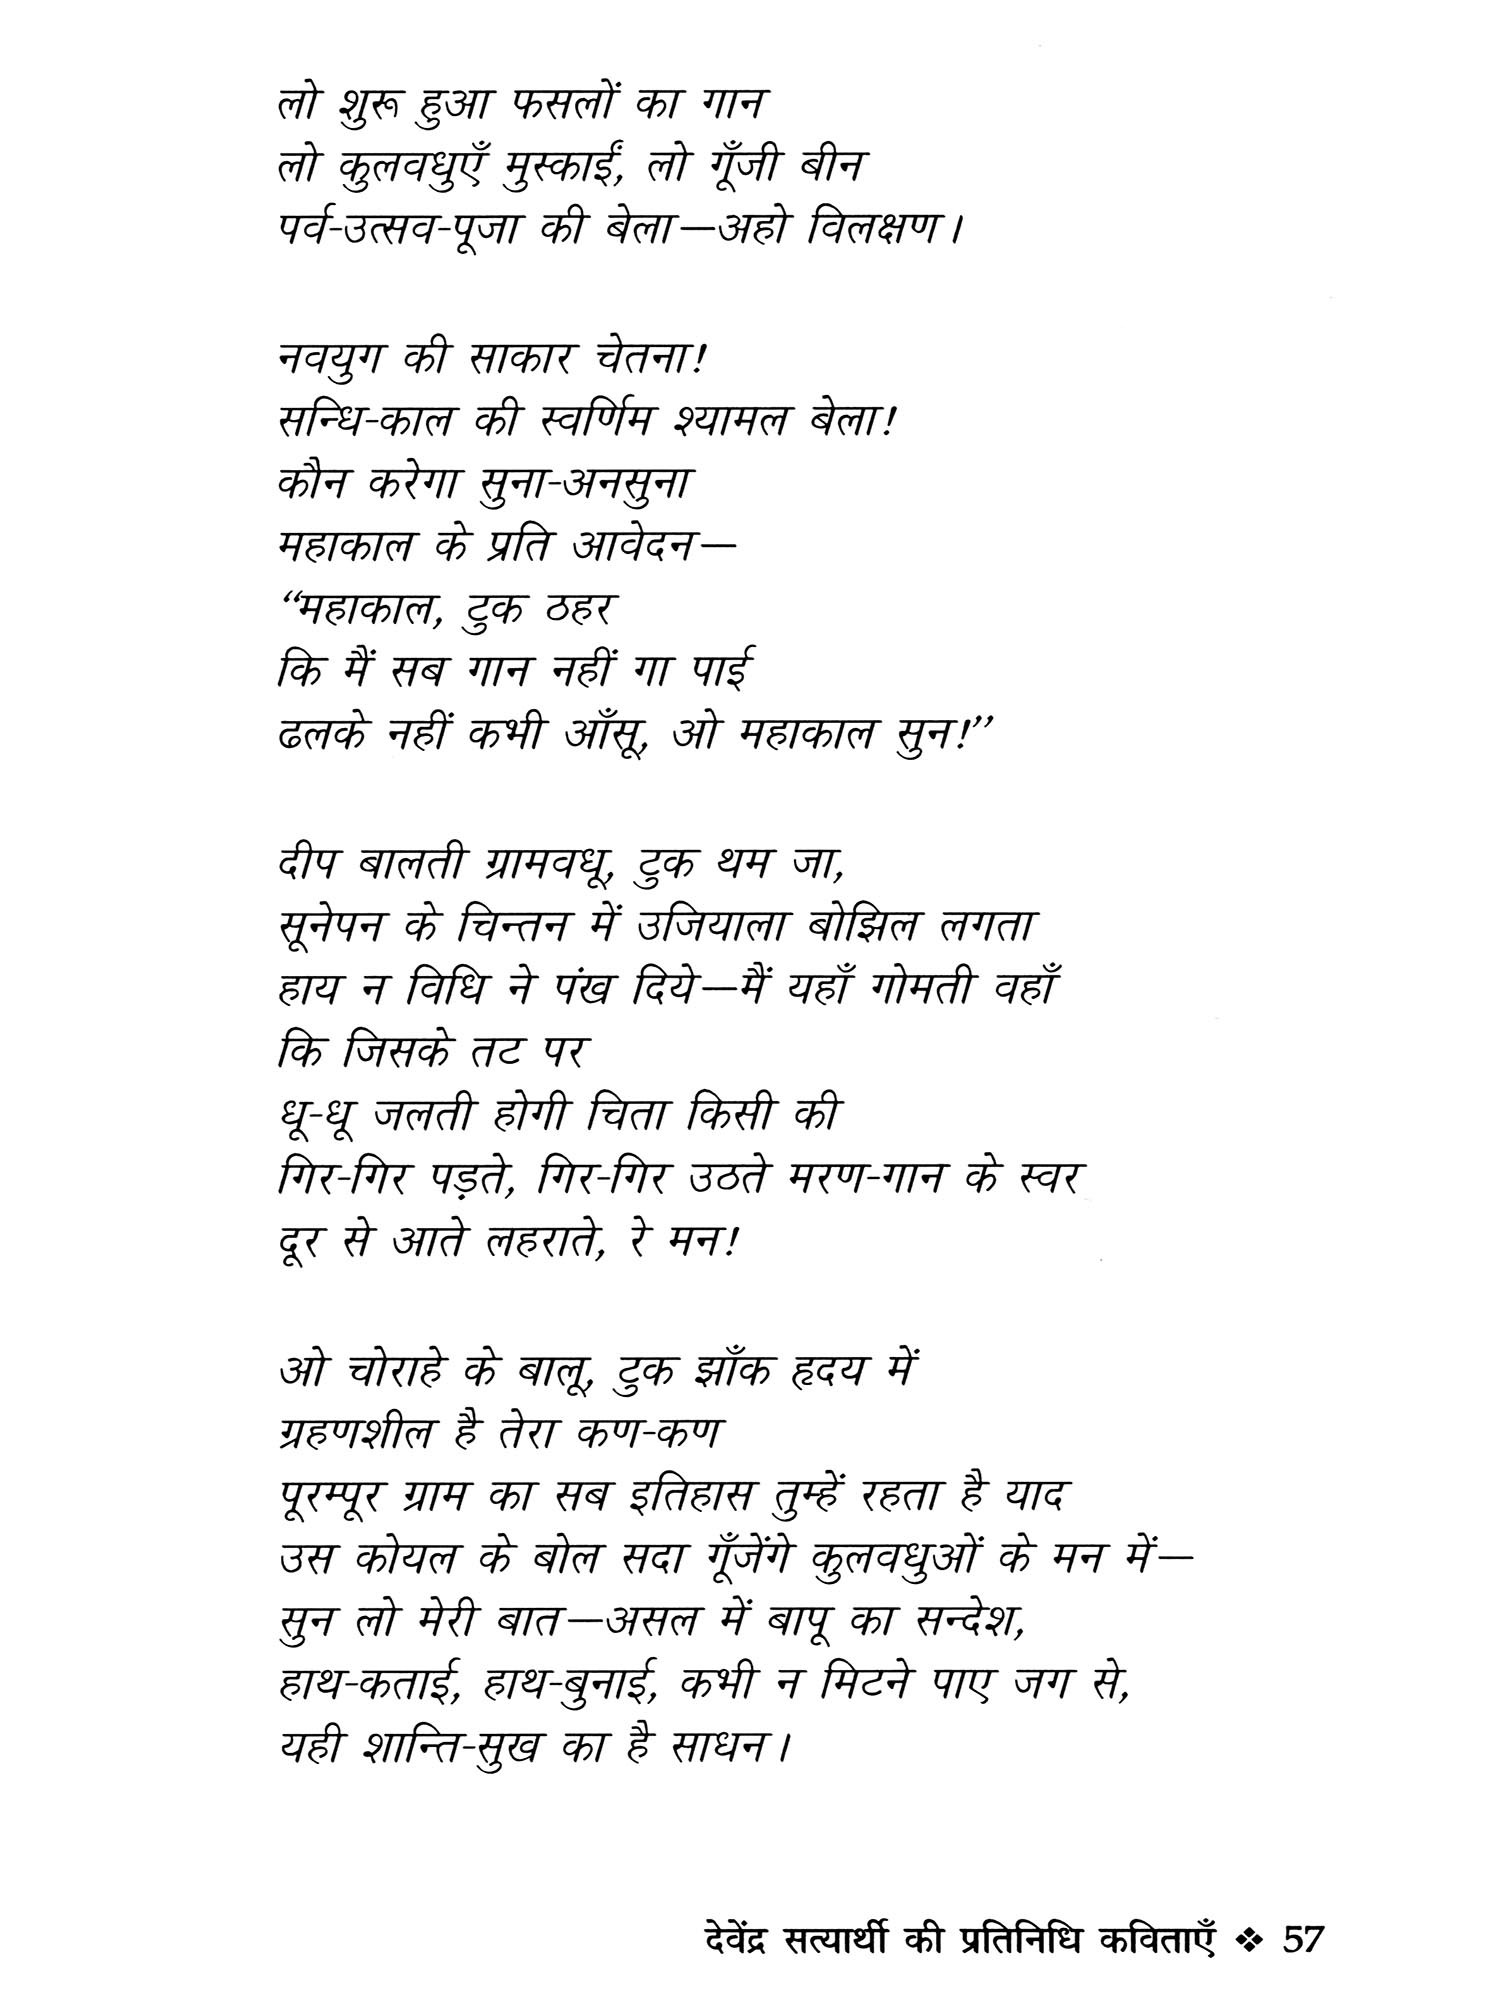 लो शुरू हुआ फसलों का गान
लो कुलवधुएँ मुस्काईं, लो गूँजी बीन
पर्व-उत्सव-पूजा की बेला—अहो विलक्षण।
नवयुग की साकार चेतना!
सन्धि-काल की स्वर्णिम श्यामल बेला!
कौन करेगा सुना-अनसुना
महाकाल के प्रति आवेदन—
“महाकाल, टुक ठहर
कि मैं सब गान नहीं गा पाई
ढलके नहीं कभी आँसू, ओ महाकाल सुन!”
दीप बालती ग्रामवधू, टुक थम जा,
सूनेपन के चिन्तन में उजियाला बोझिल लगता
हाय न विधि ने पंख दिये—मैं यहाँ गोमती वहाँ
कि जिसके तट पर
धू-धू जलती होगी चिता किसी की
गिर-गिर पड़ते, गिर-गिर उठते मरण-गान के स्वर
दूर से आते लहराते, रे मन!
ओ चोराहे के बालू, टुक झाँक हृदय में
ग्रहणशील है तेरा कण-कण
पूरम्पूर ग्राम का सब इतिहास तुम्हें रहता है याद
उस कोयल के बोल सदा गूँजेंगे कुलवधुओं के मन में—
सुन लो मेरी बात—असल में बापू का सन्देश,
हाथ-कताई, हाथ-बुनाई, कभी न मिटने पाए जग से,
यही शान्ति-सुख का है साधन।
देवेंद्र सत्यार्थी की प्रतिनिधि कविताएँ ❖ 57